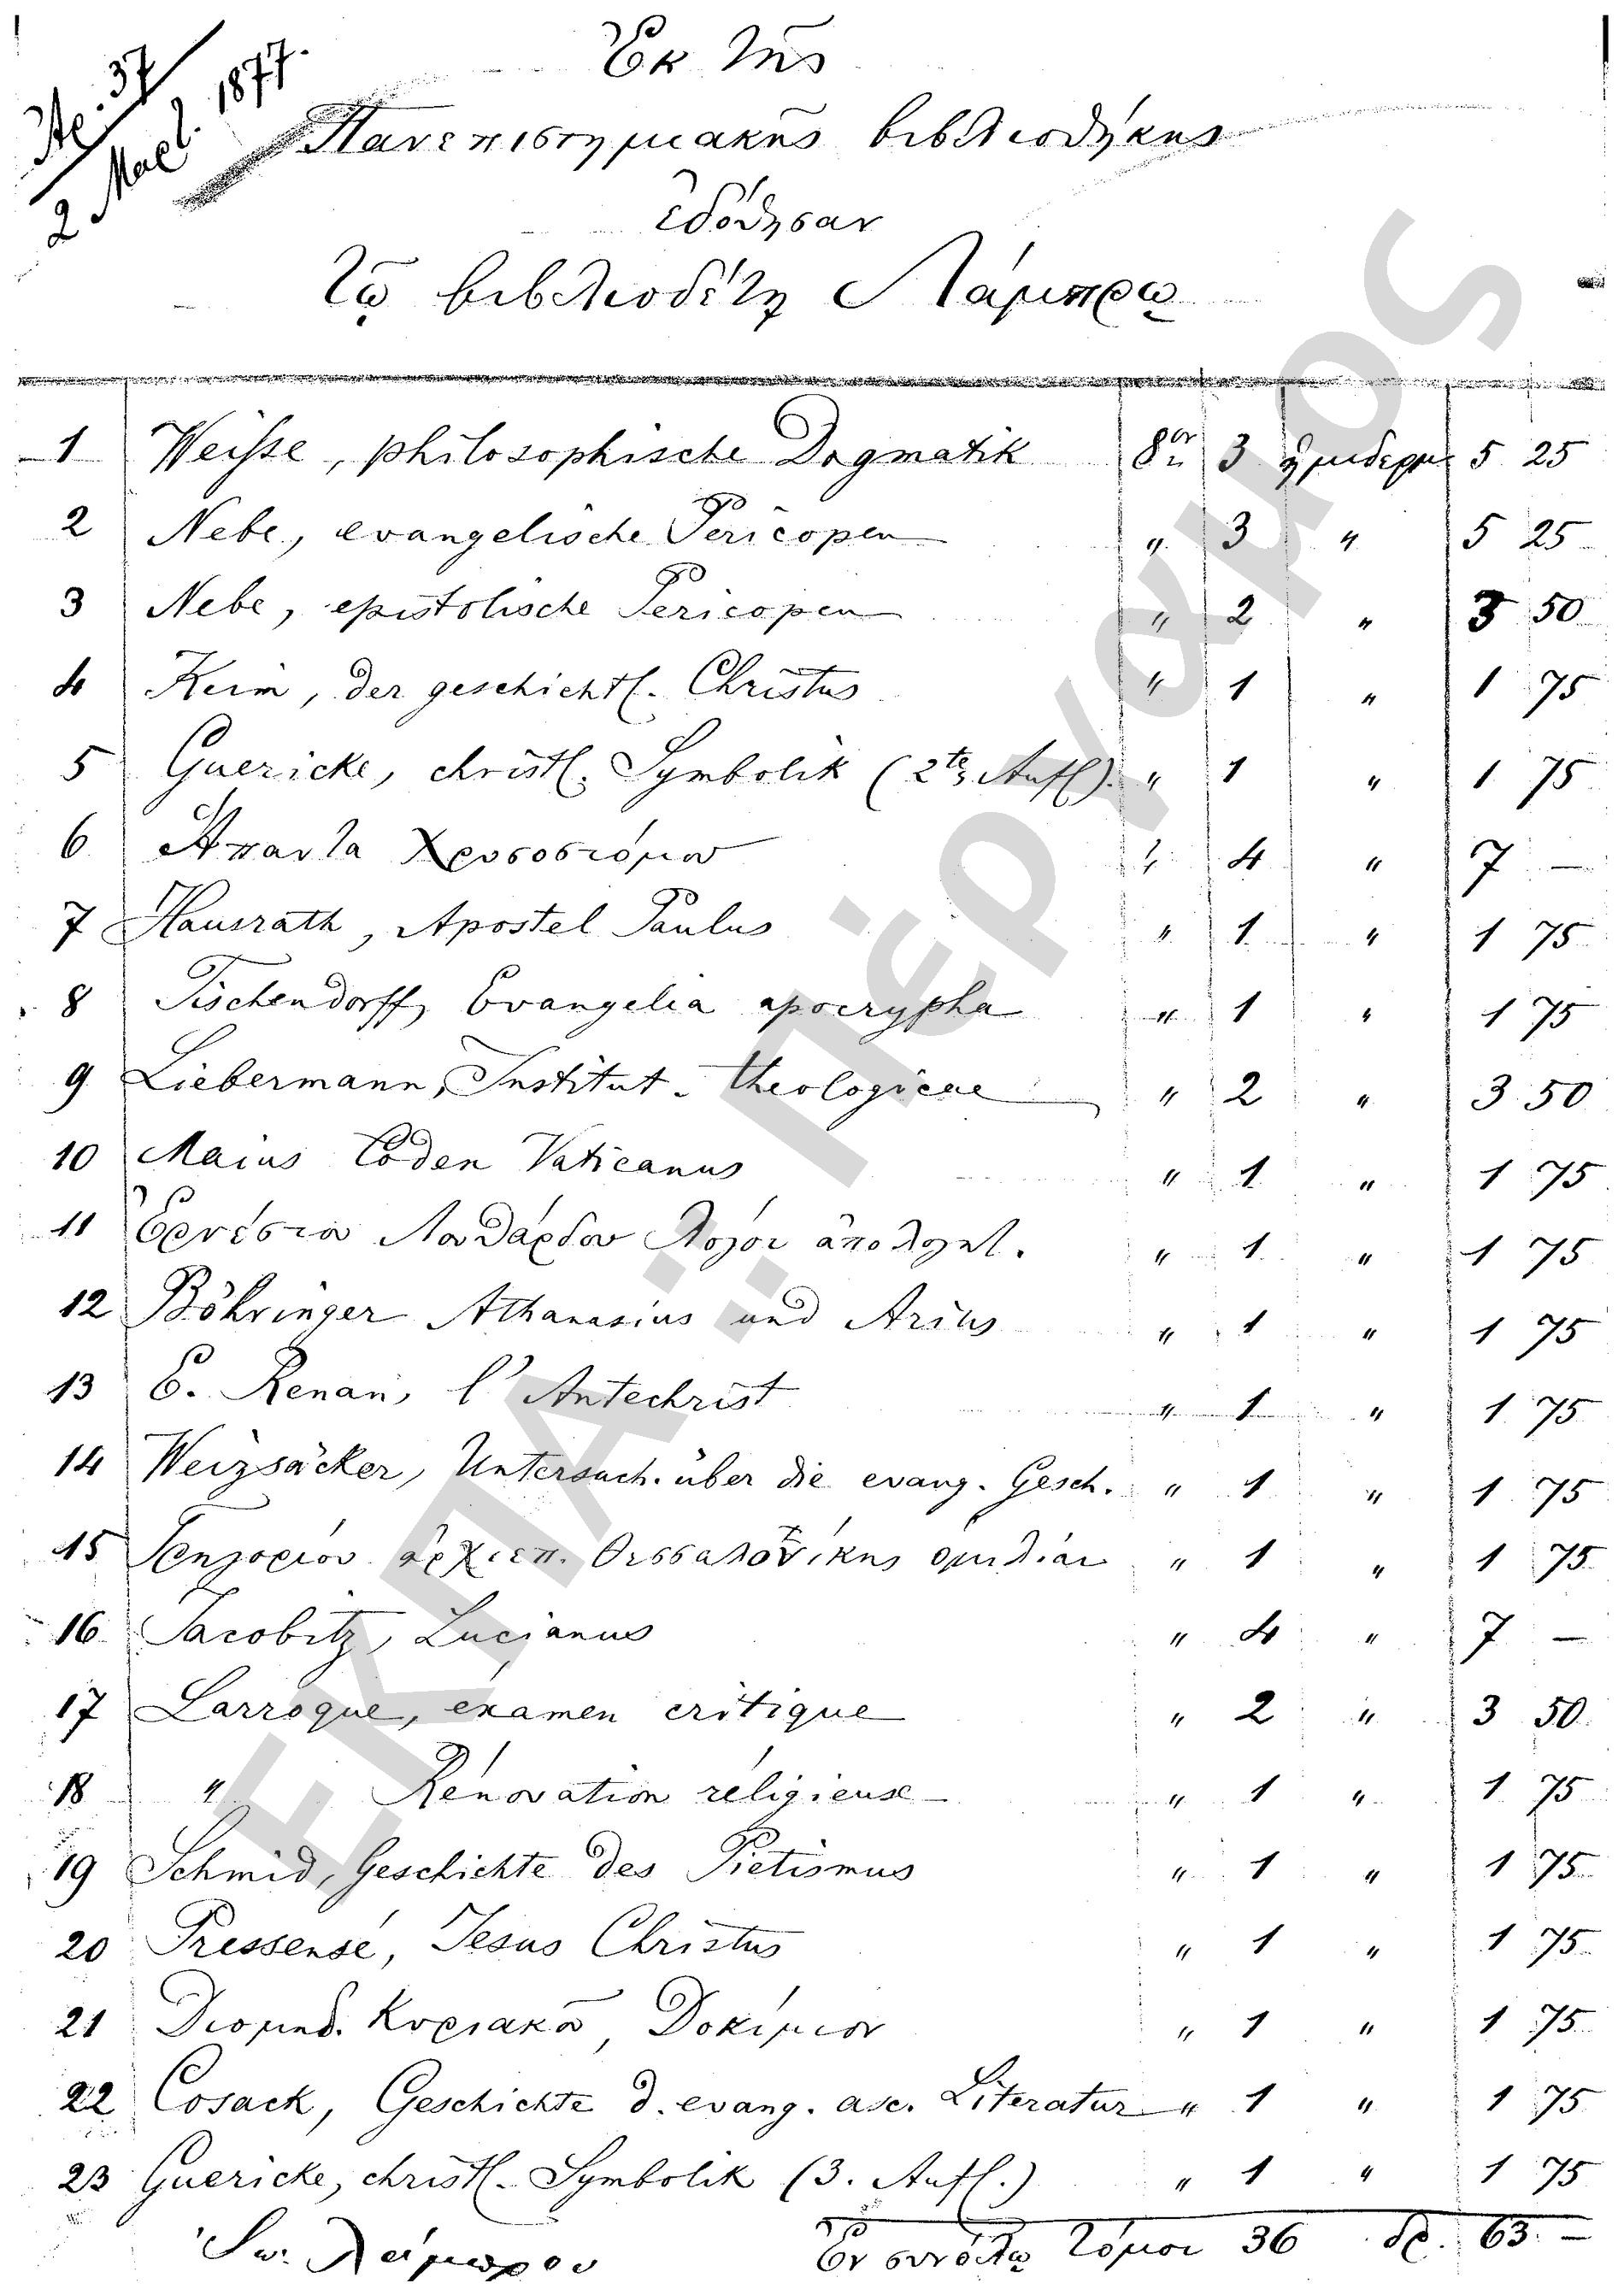 No. 37
2 Μαΐ. 1877.
Ἐκ τῆς
Πανεπιστημιακῆς βιβλιοθήκης
ἐδόθησαν
τῷ βιβλιοδέτῃ Λάμπρῳ
1 Weisse, philosophische Dogmatik 8ον 3 ἡμιδερμ. 5 25
2 Nebe, evangelische Pericopen " 3 " 5 25
3 Nebe, epistolische Pericopen " 2 " 3 50
4 Keim, der geschichtl. Christus " 1 " 1 75
5 Guericke, christl. Symbolik (2te Aufl). " 1 " 1 75
6 Ἅπαντα Χρυσοστόμου " 4 " 7 —
7 Hausrath, Apostel Paulus " 1 " 1 75
8 Tischendorff, Evangelia apocrypha " 1 " 1 75
9 Liebermann, Institut. theologicae " 2 " 3 50
10 Maius Codex Vaticanus " 1 " 1 75
11 Ἐρνέστου Λουθάρδου Λόγοι ἀπολογητ. " 1 " 1 75
12 Böhringer Athanasius und Arius " 1 " 1 75
13 E. Renan, l'Antechrist " 1 " 1 75
14 Weizsäcker, Untersuch. über die evang. Gesch. " 1 " 1 75
15 Γρηγορίου ἀρχιεπ. Θεσσαλονίκης ὁμιλίαι " 1 " 1 75
16 Jacobitz, Lucianus " 4 " 7 —
17 Larroque, examen critique " 2 " 3 50
18 " Rénovation religieuse " 1 " 1 75
19 Schmid, Geschichte des Pietismus " 1 " 1 75
20 Pressensé, Jesus Christus " 1 " 1 75
21 Διομήδ. Κυριακοῦ, Δοκίμιον " 1 " 1 75
22 Cosack, Geschichte d. evang. asc. Literatur " 1 " 1 75
23 Guericke, christl. Symbolik (3. Aufl.) " 1 " 1 75
Ἐν συνόλῳ τόμοι 36 δρ. 63. —
Λάμπρου
ΕΚΠΑ:: Πέργαμος